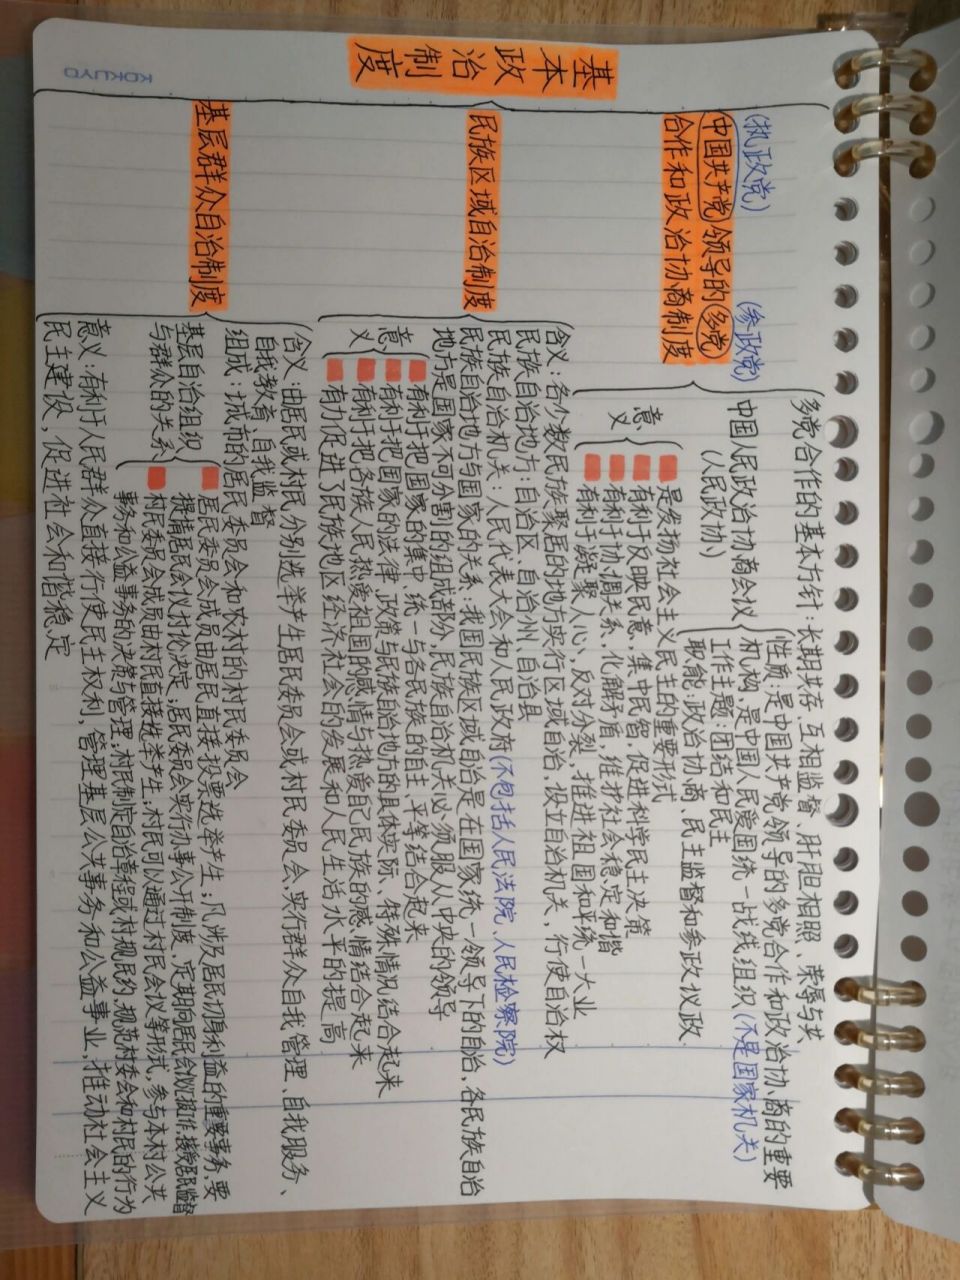 基本政治制度
(执政党)
(参政党)
中国共产党领导的多党
合作和政治协商制度
多党合作的基本方针:长期共存、互相监督、肝胆相照、荣辱与共
中国人民政治协商会议
(人民政协)
性质:是中国共产党领导的多党合作和政治协商的重要
机构,是中国人民爱国统一战线组织(不是国家机关)
工作主题:团结和民主
职能:政治协商,民主监督和参政议政
意义
是发扬社会主义民主的重要形式
有利于反映民意,集中民智,促进科学民主决策
有利于协调关系、化解矛盾,维护社会稳定和谐
有利于凝聚人心、反对分裂,推进祖国和平统一大业
民族区域自治制度
含义:各个数民族聚居的地方实行区域自治,设立自治机关,行使自治权
民族自治地方:自治区、自治州、自治县
民族自治机关:人民代表大会和人民政府(不包括人民法院、人民检察院)
民族自治地方与国家的关系:我国民族区域自治是在国家统一领导下的自治,各民族自治
地方是国家不可分割的组成部分,民族自治机关必须服从中央的领导
意义
有利于把国家的集中、统一与各民族的自主、平等结合起来
有利于把国家的法律、政策与民族自治地方的具体实际、特殊情况结合起来
有利于把各族人民热爱祖国的感情与热爱自己民族的感情结合起来
有力促进了民族地区经济社会的发展和人民生活水平的提高
基层群众自治制度
含义:由居民或村民分别选举产生居民委员会或村民委员会,实行群众自我管理、自我服务、
自我教育、自我监督
组成:城市的居民委员会和农村的村民委员会
基层自治组织
与群众的关系
居民委员会成员由居民直接投票选举产生;凡涉及居民切身利益的重要事务,要
提请居民会议讨论决定;居民委员会实行办事公开制度、定期向居民会议汇报工作,接受居民监督
村民委员会成员由村民直接选举产生;村民可以通过村民会议等形式,参与本村公共
事务和公益事务的决策与管理;村民制定自治章程或村规民约,规范村委会和村民的行为
意义:有利于人民群众直接行使民主权利,管理基层公共事务和公益事业,推动社会主义
民主建设,促进社会和谐稳定
KOKUYO